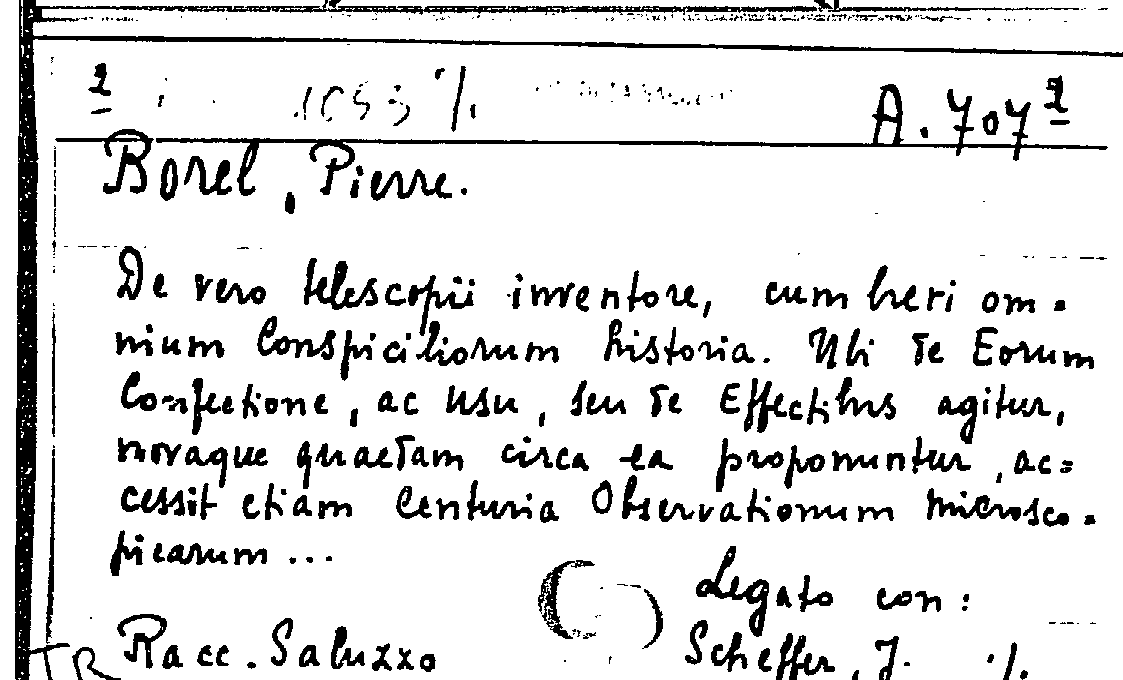 2
A. 707 2
Borel, Pierre.
De vero telescopii inventore, cum breri om=
nium Conspiciliorum historia. Ubi de Eorum
Confectione, ac usu, seu de Effectibus agitur,
novaque quaedam circa ea proponuntur, ac=
cessit etiam Centuria Observationum microsco=
picarum ...
Legato con:
Racc. Saluzzo
Scheffer, J. ·/.